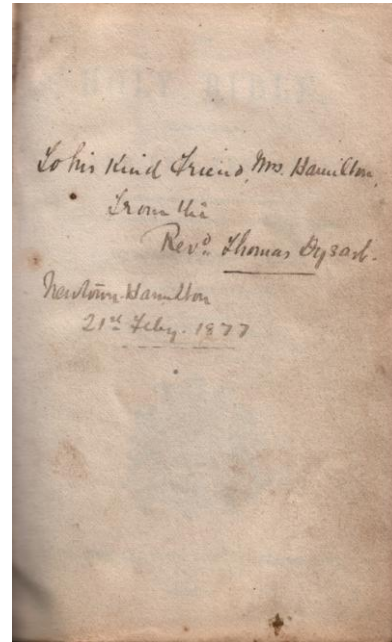 HOLY BIBLE
To his Kind Friend, Mrs. Hamilton,
From the
Revd. Thomas Dysart.
Newtown-Hamilton
21st Feby. 1877